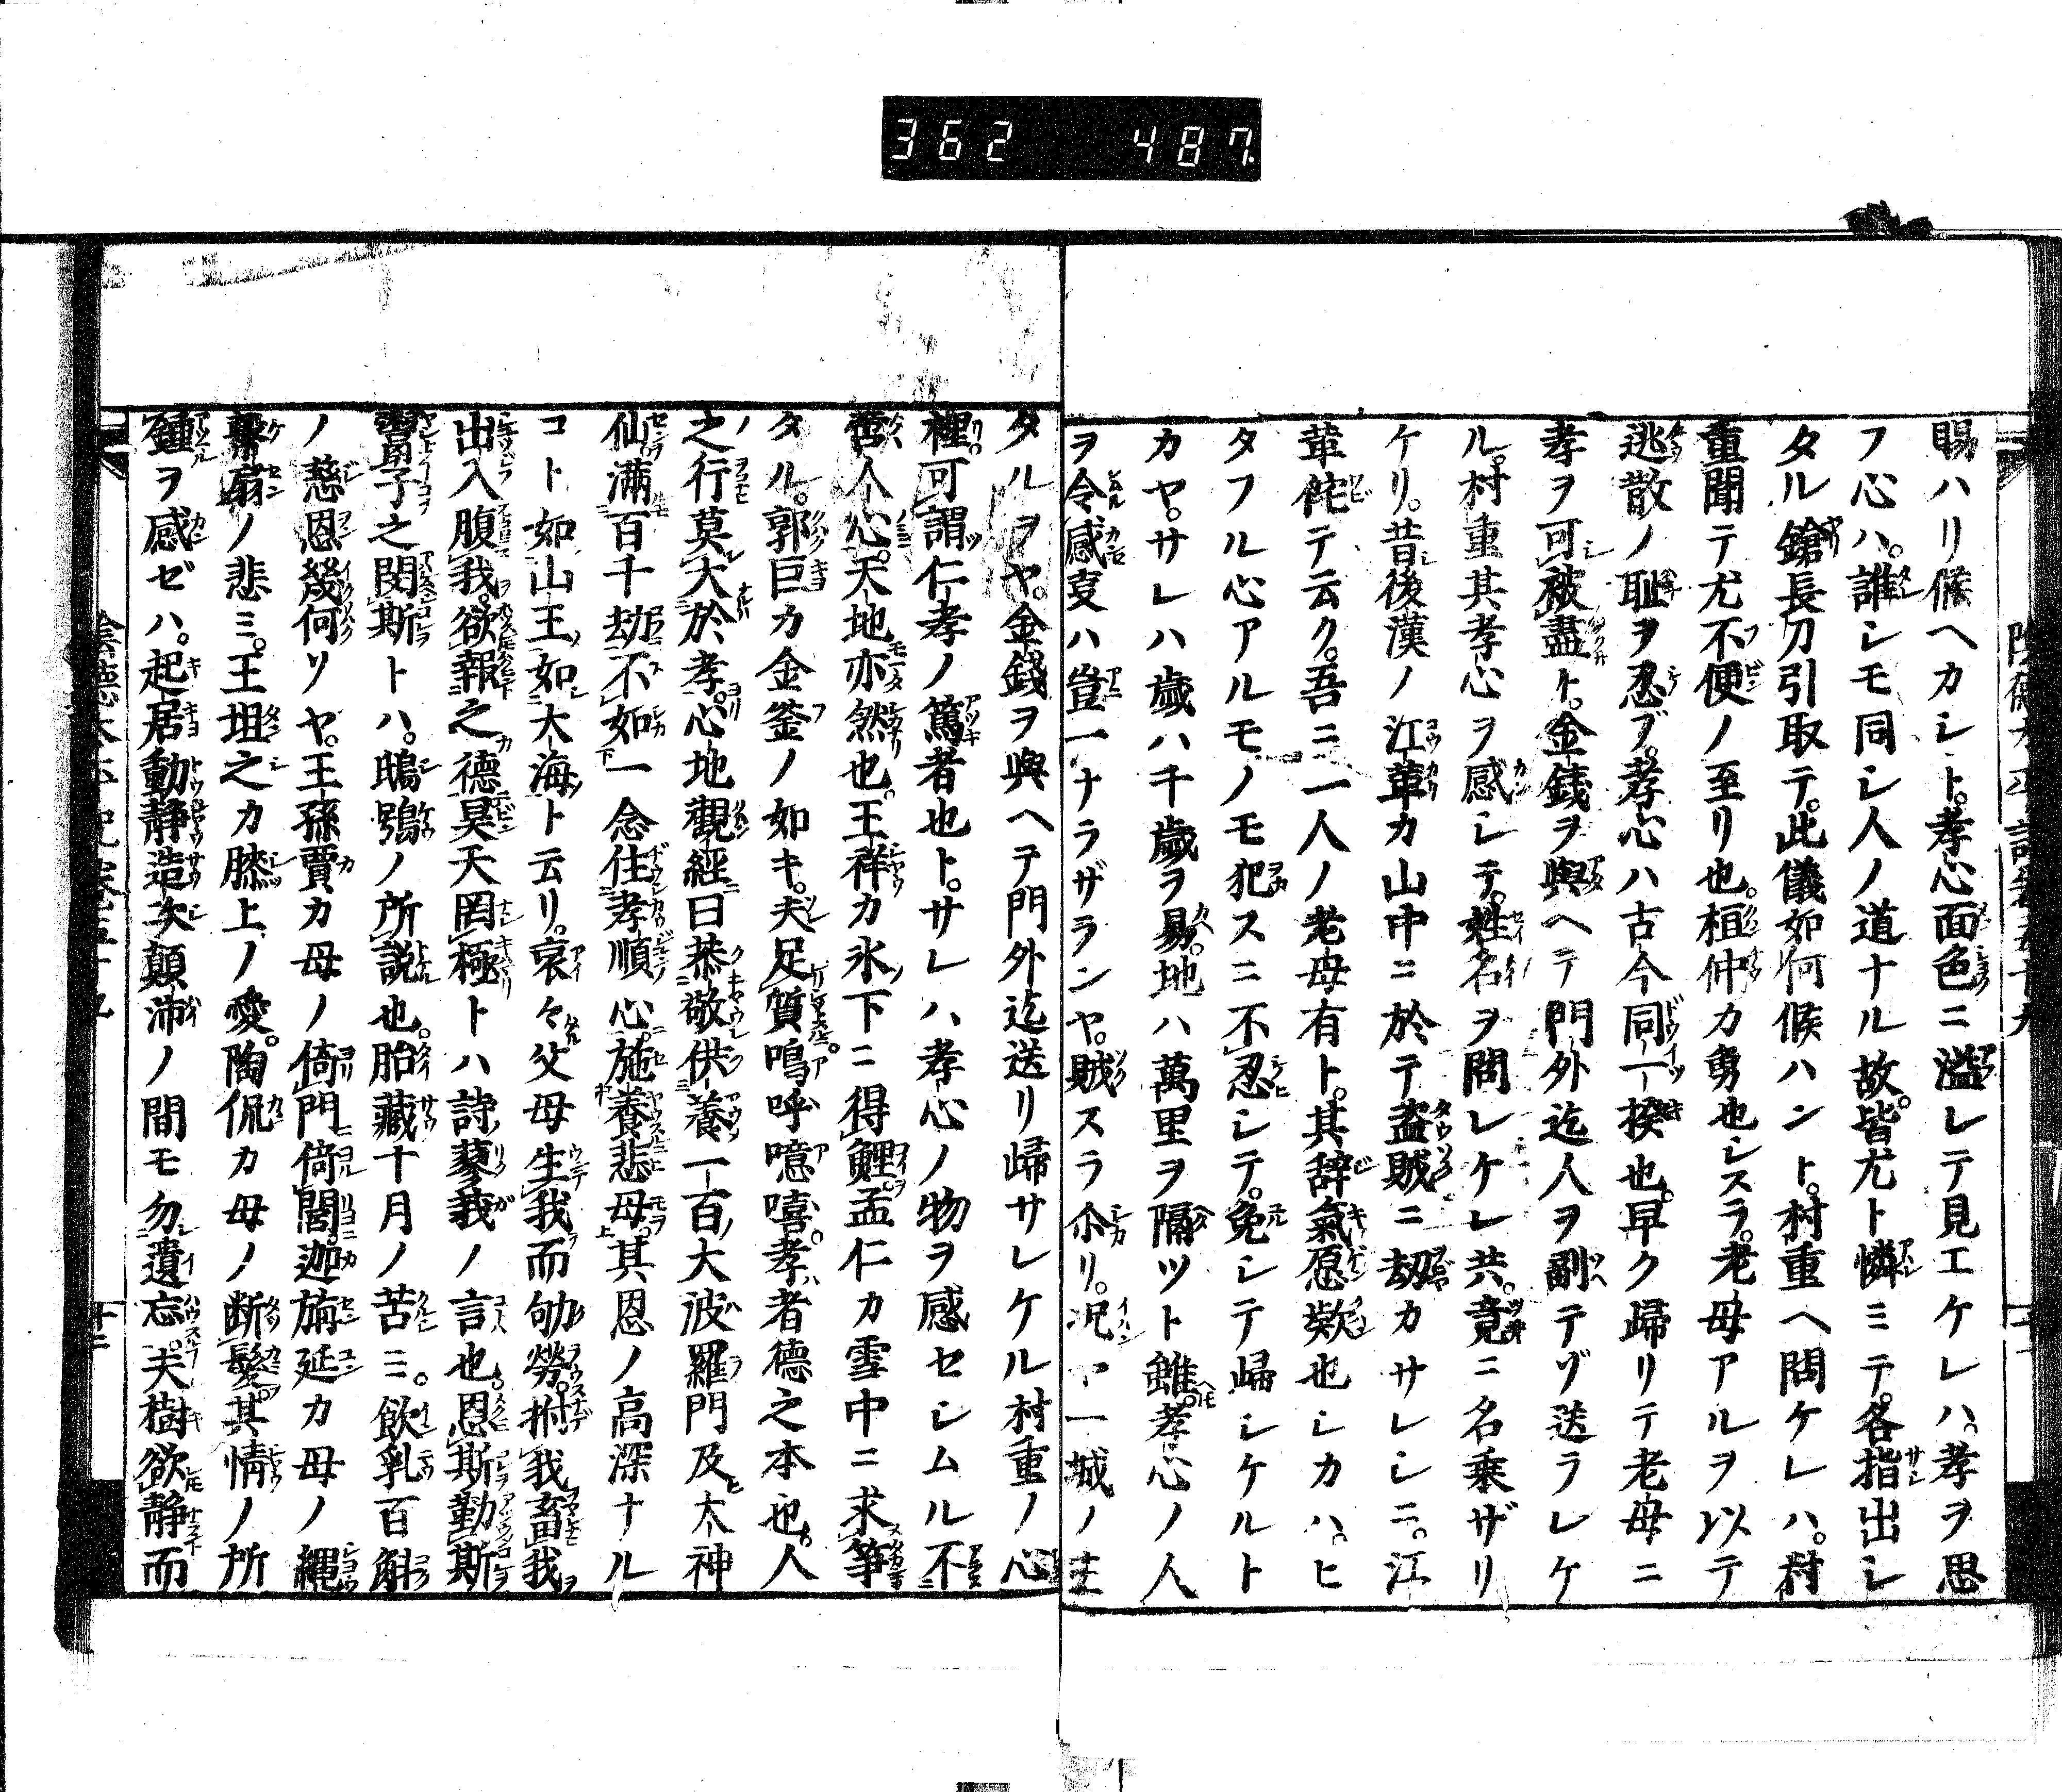 362 487
賜ハリ候ヘカシト。孝心面色ニ溢レテ見エケレハ、孝ヲ思
フ心ハ。誰シモ同シ人ノ道ナル故。皆尤ト憐ミテ。各指出シ
タル鎗長刀引取テ。此儀如何候ハント。村重ヘ問ケレハ。村
重聞テ尤不便ノ至リ也。桓仲カ勇也シスラ。老母アルヲ以テ
逃散ノ耻ヲ忍ブ。孝心ハ古今同一揆也。早ク歸リテ老母ニ
孝ヲ可被盡ト。金錢ヲ與ヘテ門外迄人ヲ副テゾ送ラレケ
ル。村重其孝心ヲ感シテ。姓名ヲ問レケレ共。竟ニ名乗ザリ
ケリ。昔後漢ノ江革カ山中ニ於テ盗賊ニ刼カサレシニ。江
革侘テ云ク。吾ニ一人ノ老母有ト。其辞氣愿欵也シカハ。ヒ
タフル心アルモノモ犯スニ不忍シテ。免シテ歸シケルト
カヤ。サレハ歳ハ千歳ヲ易。地ハ萬里ヲ隔ツト雖。孝心ノ人
ヲ令感㕝ハ豈一ナラザランヤ。賊スラ尒リ。况ヤ一城ノ主
タルヲヤ。金錢ヲ與ヘテ門外迄送リ歸サレケル村重ノ心
裡。可謂仁孝ノ篤者也ト。サレハ孝心ノ物ヲ感セシムル不
啻人心。天地亦然也。王祥カ氷下ニ得鯉。孟仁カ雪中ニ求筍
タル。郭巨カ金釜ノ如キ。夫足質。嗚呼噫嘻。孝者德之本也。人
之行莫大於孝。心地觀經曰恭敬供養一百大波羅門及大神
仙。滿百千劫不如一念住孝順心。施養悲母。其恩ノ高深ナル
コト如山王。如大海ト云リ。哀々父母生我而劬勞。拊我畜我
出入腹我。欲報之德昊天罔極トハ詩蓼莪ノ言也。恩斯勤斯
鬻子之閔斯トハ。鴟鴞ノ所説也。胎藏十月ノ苦ニ。飲乳百斛
ノ慈恩幾何ソヤ。王孫賈カ母ノ倚門倚閭。迦旃延カ母ノ繩
扇ノ悲ミ。王坦之カ膝上ノ愛。陶侃カ母ノ断髮。其情ノ所
鍾ヲ感ゼハ。起居動静造次顛沛ノ間モ勿遺忘。夫樹欲静而